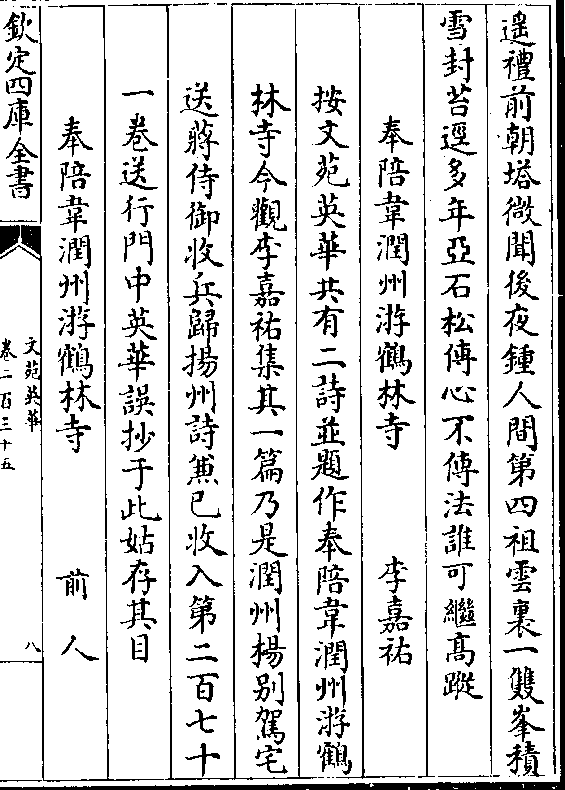 遥禮前朝塔微聞後夜鍾人間第四祖雲裏一雙峯積
雪封苔逕多年亞石松傳心不傳法誰可繼髙蹤
奉陪韋潤州游鶴林寺 李嘉祐
按文苑英華共有二詩並題作奉陪韋潤州游鶴
林寺今觀李嘉祐集其一篇乃是潤州楊别駕宅
送蔣侍御收兵歸揚州詩兼已收入第二百七十
一卷送行門中英華誤抄于此姑存其目
奉陪韋潤州游鶴林寺 前人
欽定四庫全書
文苑英華
卷二百三十五
八